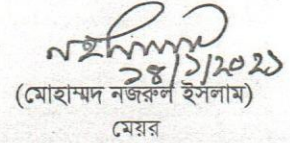 ১৪/১/২০২১
(মোহাম্মদ নজরুল ইসলাম)
মেয়র